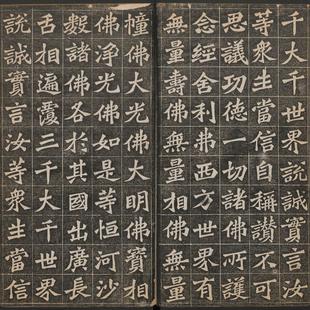 千大千世界說誠實言汝
等衆生當信是稱讚不可
思議功德一切諸佛所護
念經舍利弗西方世界有
無量壽佛無量相佛無量
幢佛大光佛大明佛寶相
佛淨光佛如是等恒河沙
數諸佛各於其國出廣長
舌相遍覆三千大千世界
說誠實言汝等衆生當信